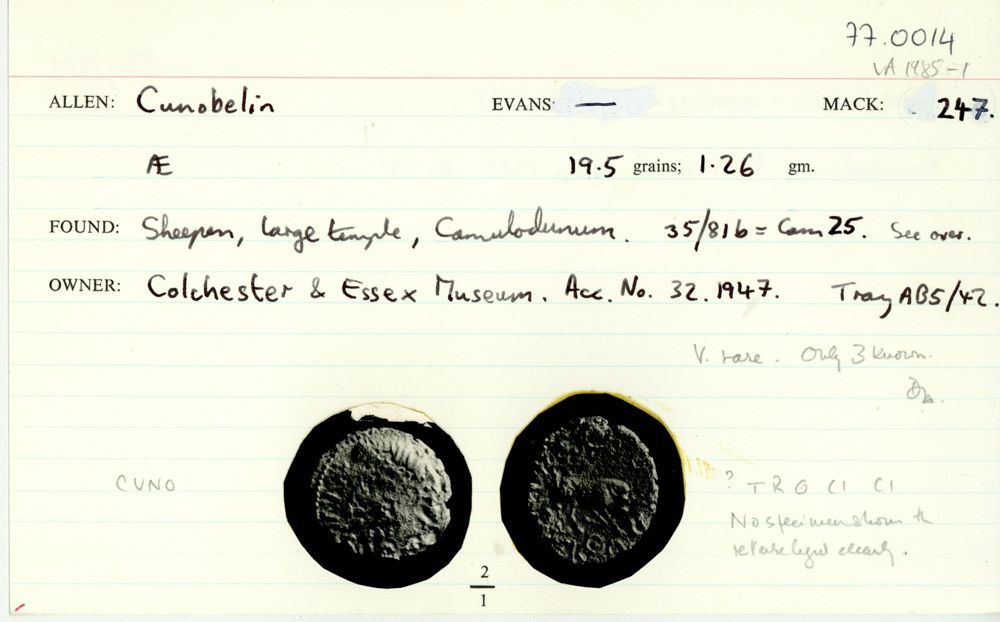 77.0014
VA 1985-1
ALLEN: Cunobelin EVANS — MACK: 247.
Æ 19.5 grains; 1.26 gm.
FOUND: Sheepen, large temple, Camulodunum. 35/816 = Cam 25. See over.
OWNER: Colchester & Essex Museum. Acc. No. 32.1947. Tray AB5/42.
V. rare. Only 3 known.
CUNO
? T R G CI CI
No specimen shows the
reverse legend clearly.
2
1